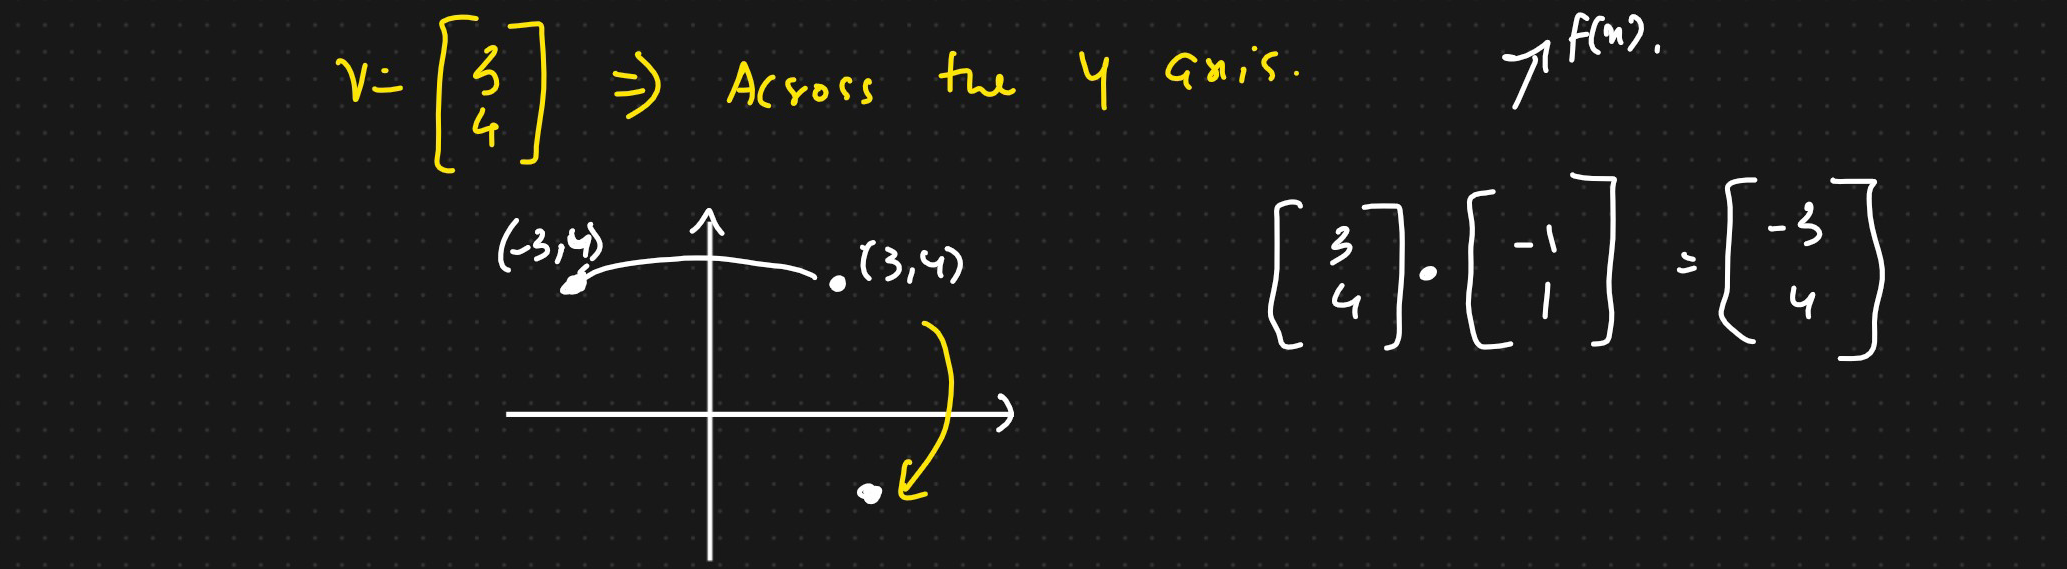 v = [3 4] ⇒ Across the y axis.
f(x).
(-3,4)
(3,4)
[3 4] • [-1 1] = [-3 4]